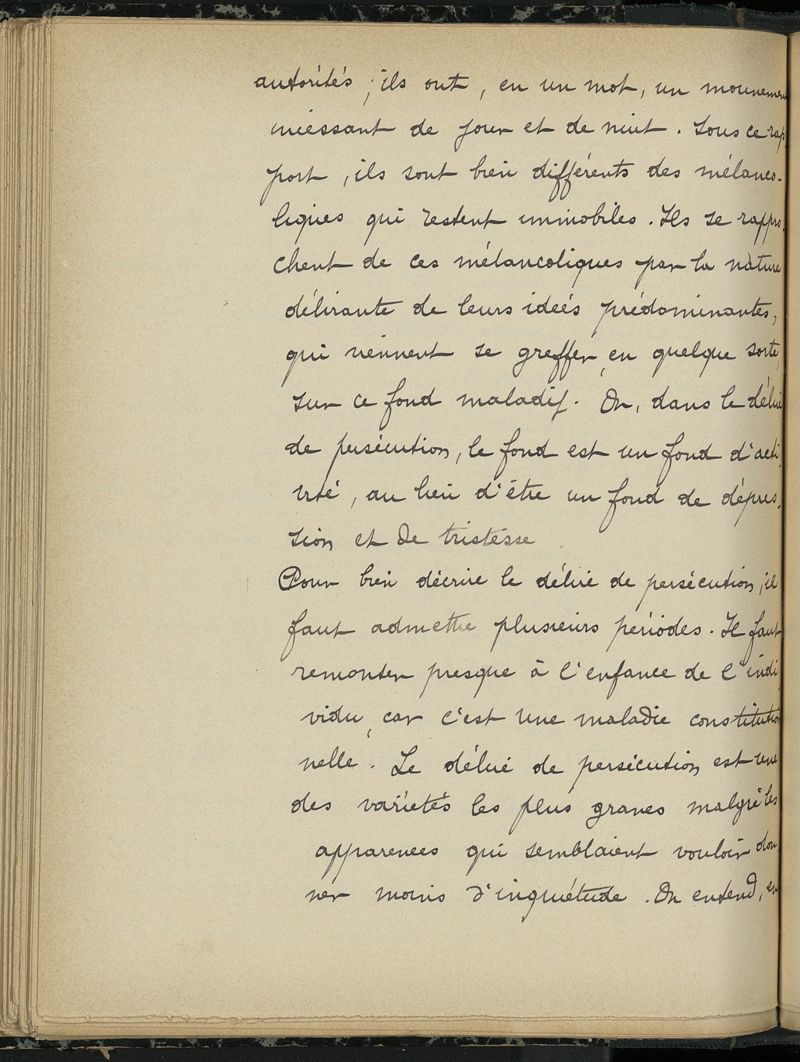 autorités ; ils ont, en un mot, un mouvement
incessant de jour et de nuit. Sous ce rap
port, ils sont bien différents des mélanco-
liques qui restent immobiles. Ils se rappro
chent de ces mélancoliques par la nature
délirante de leurs idées prédominantes,
qui viennent se greffer, en quelque sorte,
sur ce fond maladif. Or, dans le délire
de persécution, le fond est un fond d'acti
vité, au lieu d'être un fond de dépres
sion et de tristesse
Pour bien décrire le délire de persécution, il
faut admettre plusieurs périodes. Il faut
remonter presque à l'enfance de l'indi
vidu, car c'est une maladie constitution
nelle. Le délire de persécution est une
des variétés les plus graves malgré les
apparences qui semblaient vouloir don
ner moins d'inquiétude. On entend, en